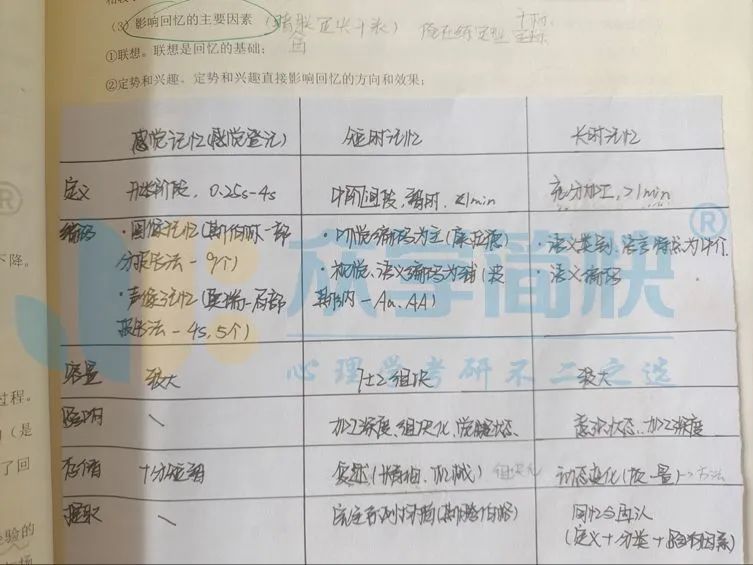 (3) 影响回忆的主要因素
①联想。联想是回忆的基础;
②定势和兴趣。定势和兴趣直接影响回忆的方向和效果;
感觉记忆(感觉登记) 短时记忆 长时记忆
定义 开始阶段, 0.25s-4s 中间阶段, 暂时, ≤1min 充分加工, >1min
编码 ·图像记忆(斯伯林-部分报告法-9个) ·听觉编码为主(康拉德) ·语义类别、语言特点为中介
·声像记忆(莫瑞-局部报告法-4s, 5个) ·视觉、语义编码为辅(波斯纳-Aa, AA) ·语义编码
容量 较大 7±2组块 较大
影响 \ 加工深度、组块化、觉醒状态 意识状态、加工深度
存储 十分短暂 复述(精细、机械) 组块化 动态变化(质、量)->方法
提取 \ 完全系列扫描(斯腾伯格) 回忆与再认
(定义+分类+影响因素)
欣学简快®
心理学考研不二之选
下降。
过程。
(是
了回
经验的